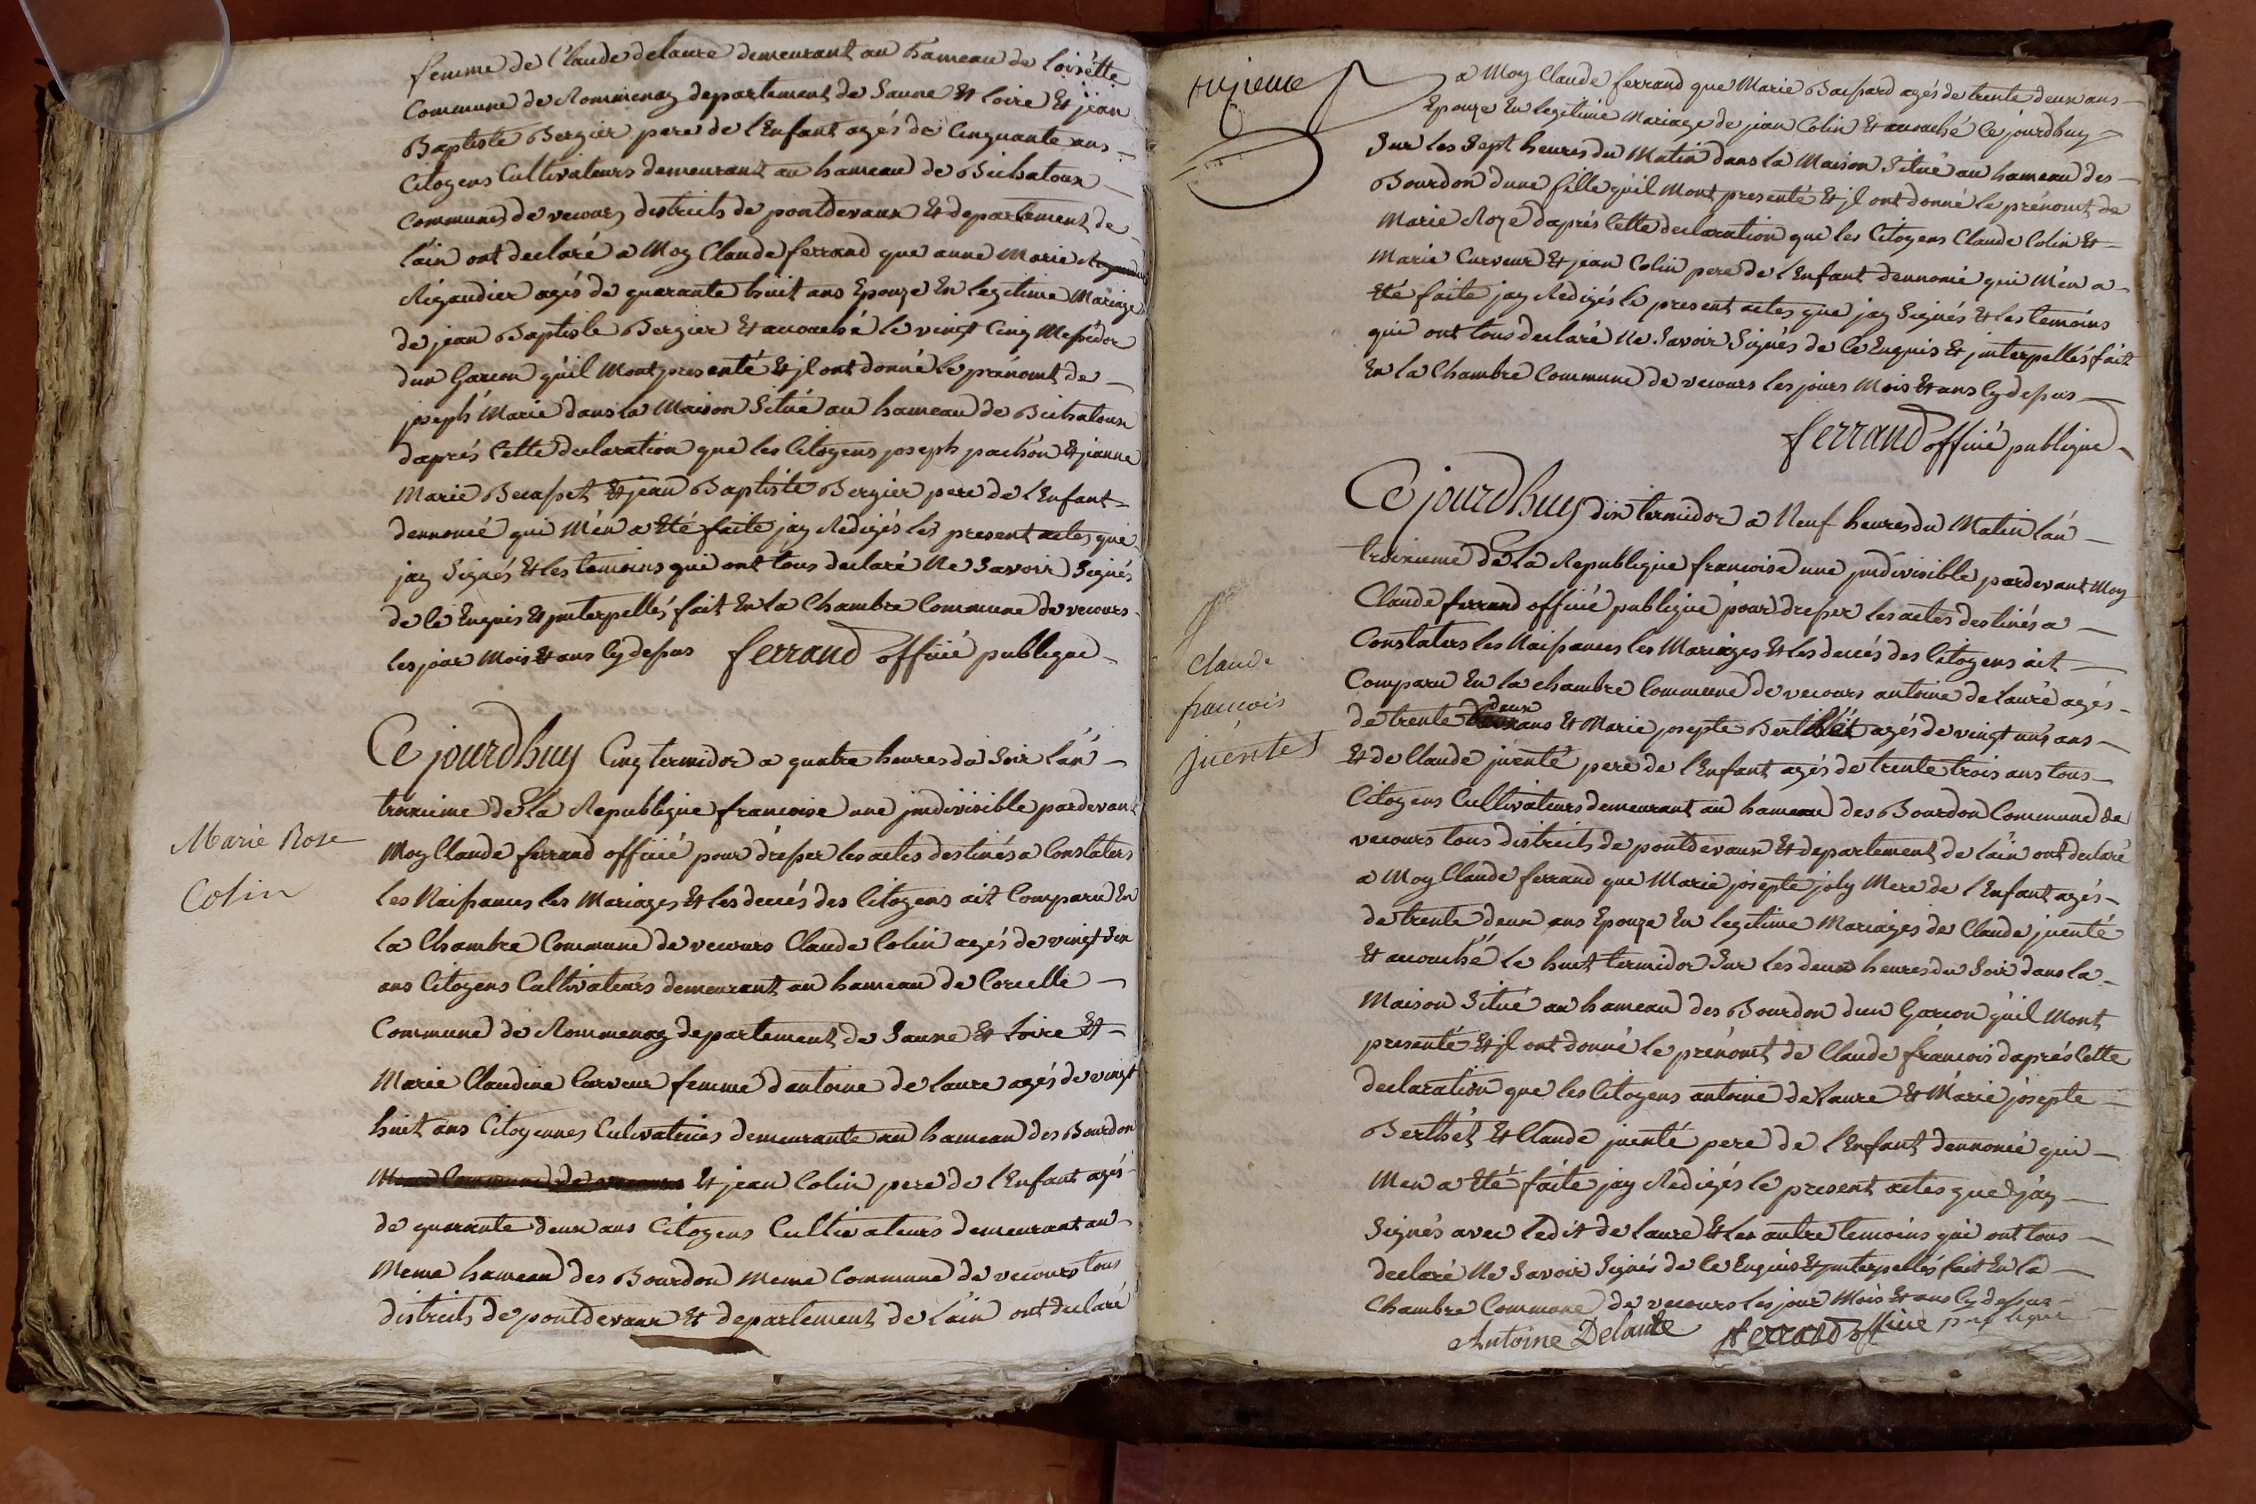 femme de Claude delaure demeurant au hameau de loisétte
Commune de Rommenaz departement de Saune Et Loire Et jean
Baptiste Bergier pere de l'Enfant agés de Cinquante ans
Citoyens Cultivateurs demeurant au hameau de Bichatoux
Commune de vecours districts de pontdevaux Et departement de
lain ont declaré a Moy Claude ferrand que anne Marie
Rigaudier agés de quarante huit ans Epouze En legitime Mariage
de jean Baptiste Bergier Et accouché le vingt Cinq Messidor
dun Garcon qúil Mont presenté Et jl ont donné le prénomt de
joseph Marie dans la Maison Situé au hameau de Bichatoux
daprés Cette declaration que les Citoyens joseph pachon Et jeanne
Marie Becasset Et jean Baptiste Bergier pere de l'Enfant
dennomé qui Mén a Eté faite jay Redigés les present actes que
jay Signés Et les temoins qui ont tous declaré Ne Savoir Signés
de Ce Enquis Et jnterpellés fait En la Chambre Commune de vecours
les jour Mois Et ans Cy depus ferrand officié publique
Ce jourdhuy Cinq termidor a quatre heures du Soir lán
troisieme de la Republique francoise une jndivisible pardevant
Moy Claude ferrand officié pour drésser les actes destinés a Constaters
Les Naissances les Mariages Et les decés des Citoyens ait Comparu En
la Chambre Commune de vecours Claude Colin agés de vingt Six
ans Citoyens Cultivateurs demeurant au hameau de Corcelle
Commune de Rommenaz departement de Saune Et Loire Et
Marie Rose
Colin
Marie Claudine Curveur femme dantoine de laure agés de vingt
huit ans Citoyennes Culivatrices demeurante au hameau des Bourdon
Et jean Colin pere de l'Enfant agés
de quarante deux ans Citoyens Cultivateurs demeurant au
Meme hameau des Bourdon Meme Commune de vecours tous
districts de pontdevaux Et departement de l'ain ont declaré
a Moy Claude ferrand que Marie Bassard agés de trente deux ans
Epouze En legitime Mariage de jean Colin Et accouché Ce jourdhuy
Sur les Sept heures du Matin dans la Maison Situé au hameau des
Bourdon dune fille qúil Mont presenté Et jl ont donné le prénomt de
Marie Roze daprés Cette declaration que les Citoyens Claude Colin Et
Marie Curveur Et jean Colin pere de l'Enfant dennomé qui Mén a
Eté faite jay Redigés le present actes que jay Signés Et les temoins
qui ont tous declaré Ne Savoir Signés de Ce Enquis Et jnterpellés fait
En la Chambre Commune de vecours les jours Mois Et ans Cy depus
ferrand officié publique
Ce jourdhuy dix termidor a Neuf heures du Matin lán
troisieme de la Republique francoise une jndivisible pardevant Moy
Claude ferrand officié publique pour dresser les actes destinés a
Constaters les Naissances les Mariages Et les decés des Citoyens ait
Claude
francois
juénte
Comparu En la chambre Commune de vecours antoine de laure agés
de trente deux ans Et Marie josepte Berthet agés de vingt un ans
Et de Claude juenté pere de l'Enfant agés de trente trois ans tous
Citoyens Cultivateurs demeurant au hameau des Bourdon Commune de
vecours tous districts de pontdevaux Et departement de l'ain ont declaré
a Moy Claude ferrand que Marie josepte joly Mere de l'Enfant agés
de trente deux ans Epouze En legitime Mariages de Claude juenté
Et accouché le huit termidor Sur les deux heures du Soir dans la
Maison Situé au hameau des Bourdon dun Garcon qúil Mont
presenté Et jl ont donné le prénomt de Claude francois daprés Cette
declaration que les Citoyens antoine de laure Et Marie josepte
Berthet Et Claude juenté pere de l'Enfant dennomé qui
Men a Eté faite jay Redigés le present actes que jay
Signés avec ledit de laure Et les autre temoins qui ont tous
declaré Ne Savoir Signés de Ce Enquis Et jnterpellés fait En la
Chambre Commune de vecours les jour Mois Et ans Cy depus
Antoine Delaure ferrand officié publique